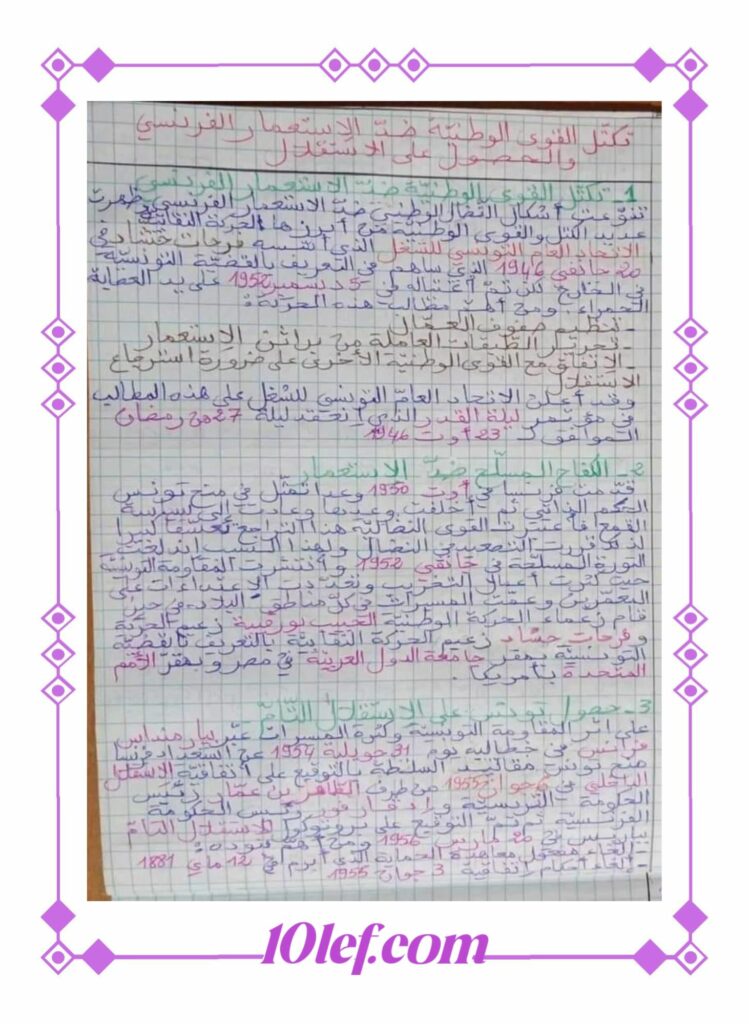 تكتّل القوى الوطنيّة ضدّ الاستعمار الفرنسي
والحصول على الاستقلال
1_ تكتل القوى الوطنيّة ضدّ الاستعمار الفرنسي
تنوّعت أشكال النّضال الوطني ضدّ الاستعمار الفرنسي وظهرت
عديد الكتل والقوى الوطنيّة من أبرزها الحركة النقابيّة
الاتحاد العام التونسي للشغل الذي أسّسه فرحات حشاد في
20 جانفي 1946 الذي ساهم في التعريف بالقضيّة التونسيّة
في الخارج لكن تمّ اغتياله في 5 ديسمبر 1952 على يد العصابة
الحمراء. ومن أهمّ مطالب هذه الحركة:
- تنظيم صفوف العمّال
- تحرير الطبقات العاملة من براثن الاستعمار
- الاتفاق مع القوى الوطنيّة الأخرى على ضرورة استرجاع
الاستقلال
وقد أعلن الاتحاد العامّ التونسي للشغل على هذه المطالب
في مؤتمر ليلة القدر الذي انعقد ليلة 27 من رمضان
الموافق لـ 23 أوت 1946
2- الكفاح المسلّح ضدّ الاستعمار
قدّمت فرنسا في أوت 1950 وعدا تمثّل في منح تونس
الحكم الذاتي ثم أخلفت وعدها وعادت إلى سياسة
القمع فاعتبرت القوى النضاليّة هذا التراجع تعنّتا كبيرا
لذلك قررت التصعيد في النضال ولهذا السبب اندلعت
الثورة المسلّحة في جانفي 1952 وانتشرت المقاومة التونسيّة
حيث كثرت أعمال التخريب وتعدّدت الاعتداءات على
المعمّرين وعمّت المسيرات في كلّ مناطق البلاد في حين
قام زعماء الحركة الوطنيّة الحبيب بورقيبة زعيم الحركة
وفرحات حشّاد زعيم الحركة النقابيّة بالتعريف بالقضيّة
التونسيّة بمقر جامعة الدول العربيّة في مصر وبمقرّ الأمم
المتّحدة بأمريكا.
3- حصول تونس على الاستقلال التّامّ
على اثر المقاومة التونسيّة وكثرة المسيرات عبّر بيار منداس
فرانس في خطابه يوم 31 جويلية 1954 عن استعداد فرنسا
منح تونس مقاليد السلطة بالتوقيع على اتفاقيّة الاستقلال
الداخلي في 3 جوان 1955 من طرف الطاهر بن عمّار رئيس
الحكومة التونسيّة وادغار فور رئيس الحكومة
الفرنسيّة ثم تمّ التوقيع على بروتوكول الاستقلال التامّ
بباريس في 20 مارس 1956 ومن أهمّ بنوده:
- إلغاء مفعول معاهدة الحماية الذي أبرم في 12 ماي 1881
- إلغاء أحكام اتفاقيّة 3 جوان 1955
10lef.com